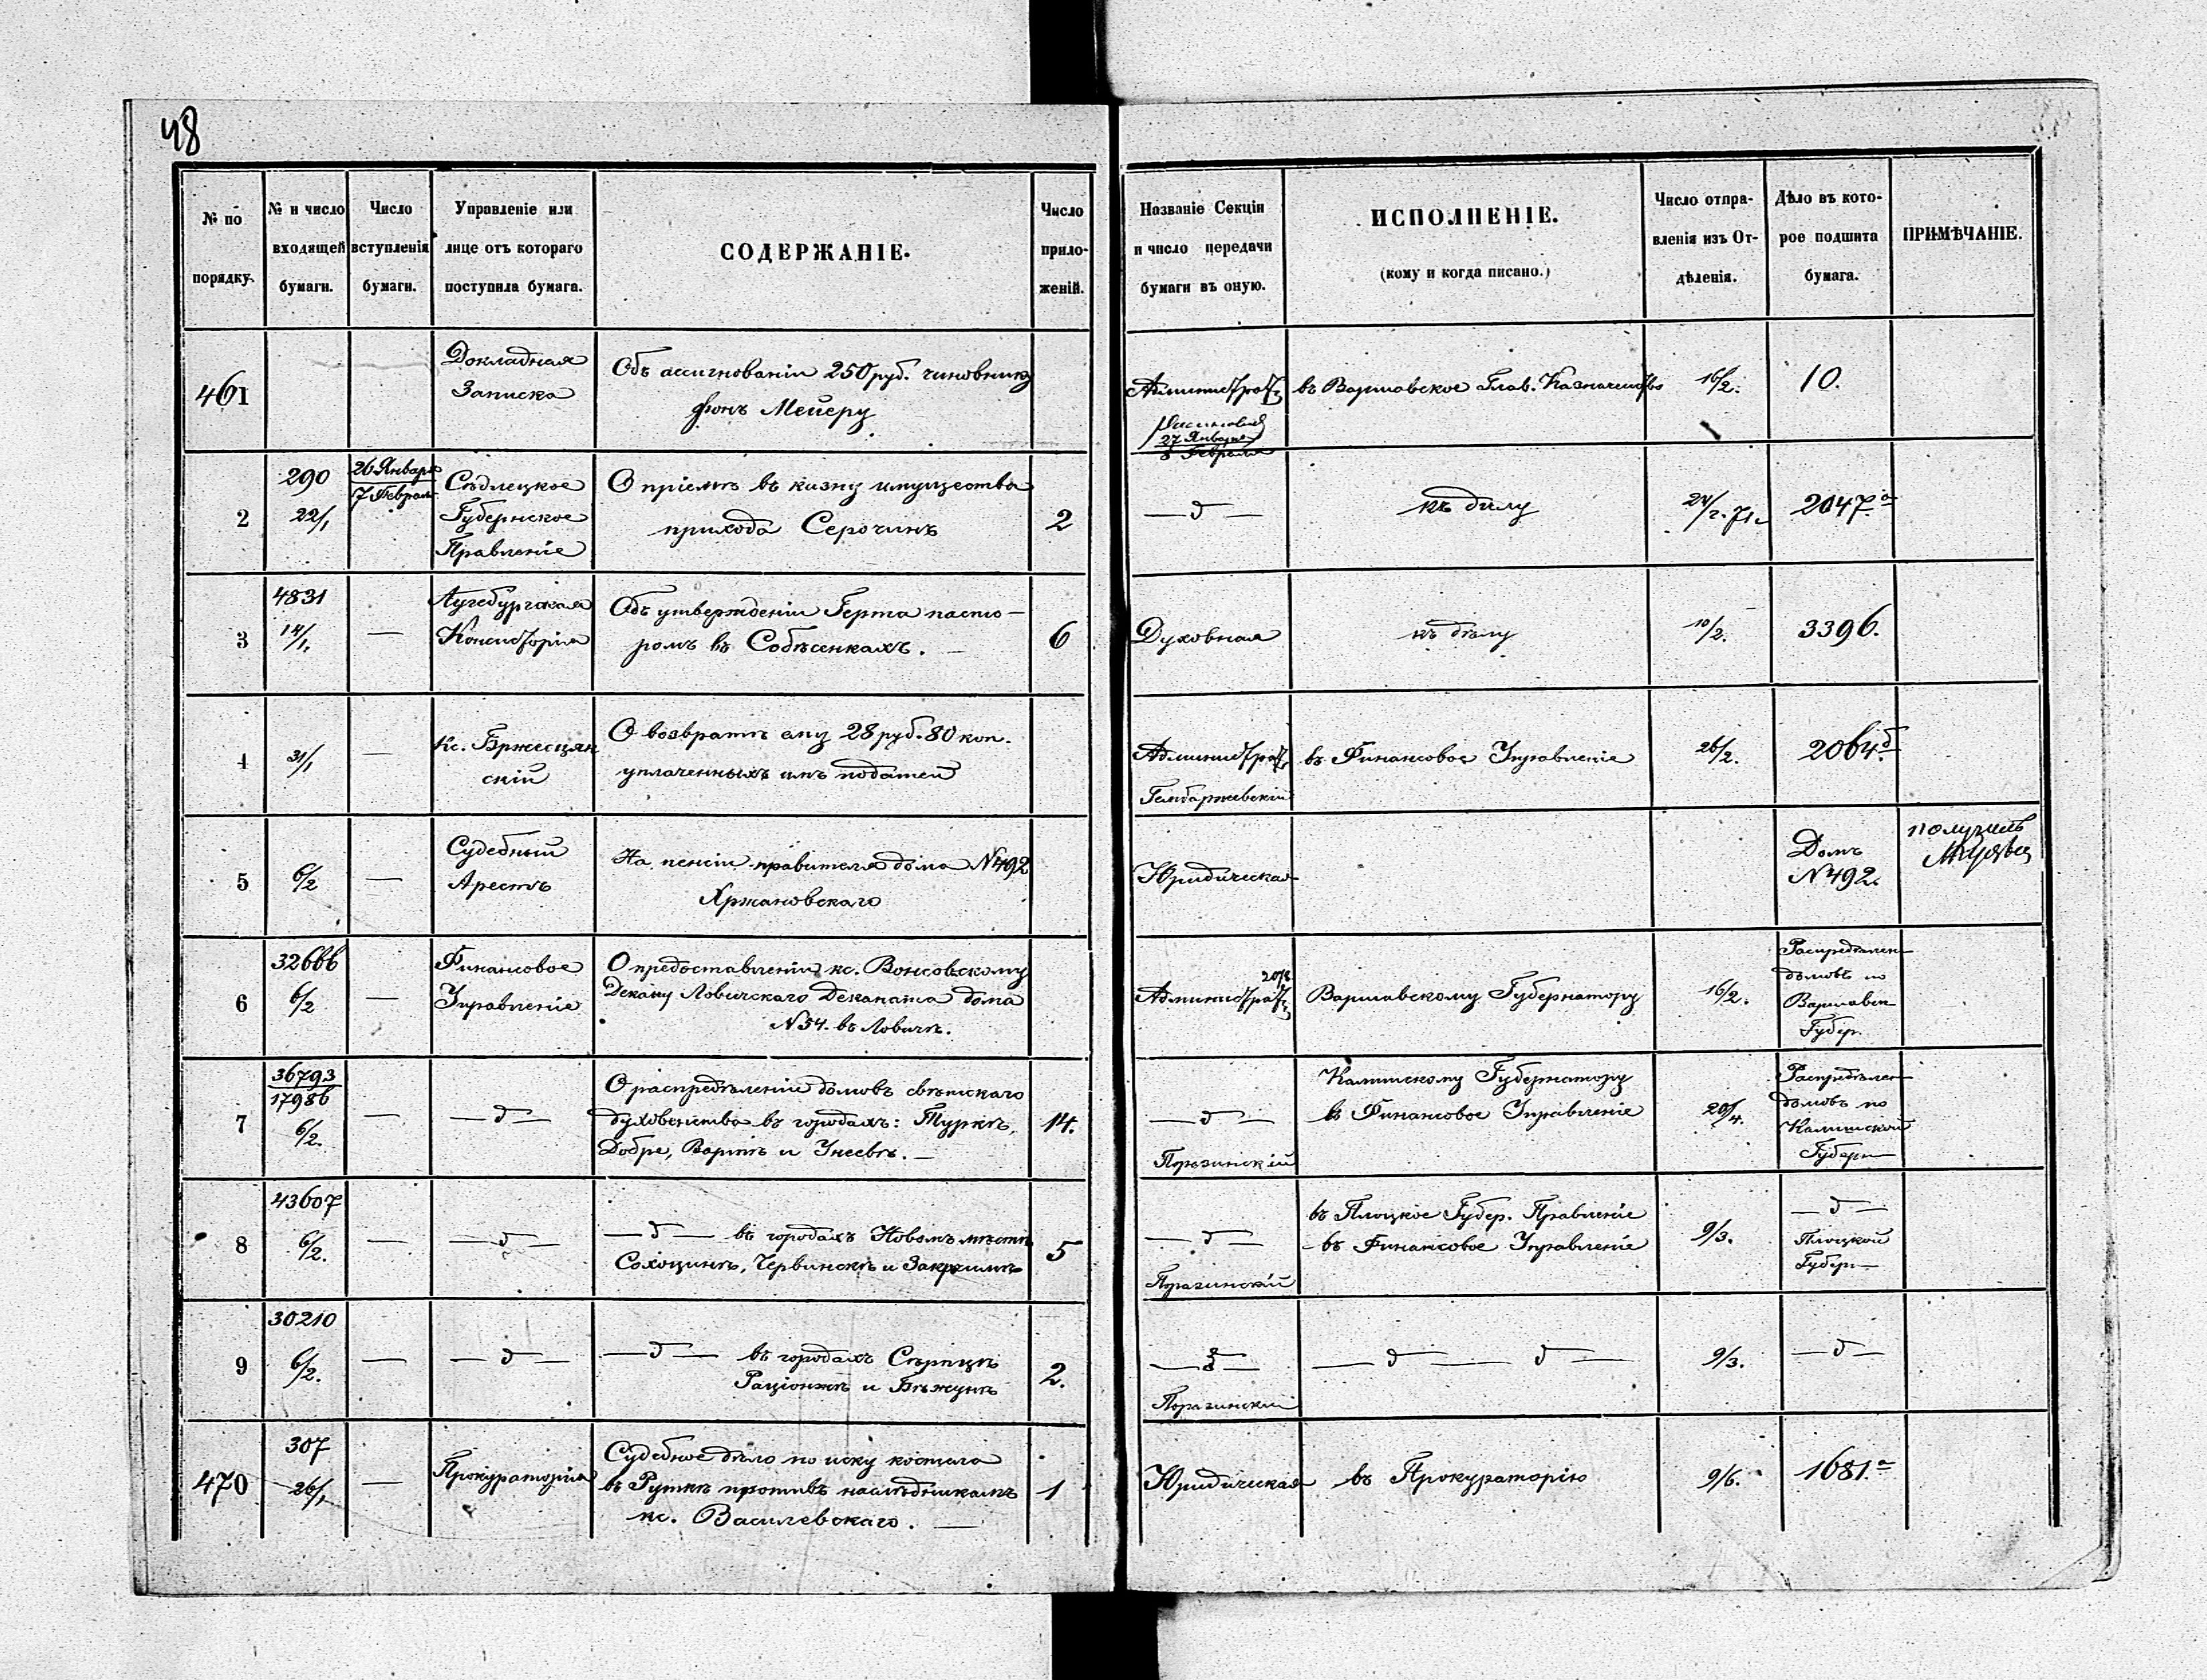 48
№ по порядку.
№ и число входящей бумаги.
Число вступленія бумаги.
Управленіе или лице отъ котораго поступила бумага.
СОДЕРЖАНІЕ.
Число приложеній.
Названіе Секціи и число передачи бумаги въ оную.
ИСПОЛНЕНІЕ.
(кому и когда писано.)
Число отправленія изъ Отдѣленія.
Дѣло въ которое подшита бумага.
ПРИМѢЧАНІЕ.
461
—
Докладная
Записка
Объ ассигнованіи 250 руб. чиновнику
фонъ Мейеру
Административ
27 Января
8 Февраля
въ Варшавское Глав. Казначейство
16/2.
10.
2
290
22/1
26 Января
7 Февраля
Сѣдлецкое
Губернское
Правленіе
О пріемѣ въ казну имущества
прихода Серочинъ
2
— д —
къ дѣлу
24/2. 71.
2047.а
3
4831
14/1.
—
Аугсбургская
Консисторія
Объ утвержденіи Герта пасто-
ромъ въ Собѣсенкахъ. —
6
Духовная
къ дѣлу
10/2.
3396.
4
31/1
—
Кс. Бржесцян
скій
О возвратѣ ему 28 руб. 80 коп.
уплаченныхъ имъ податей
Административ
Гембаржевскій
въ Финансовое Управленіе
26/2.
2064.б
5
6/2
—
Судебный
Арестъ
На пенсіи правителя дома N 492
Хржановскаго
Юридическая
Домъ
N 492.
получилъ
6
32666
6/2
—
Финансовое
Управленіе
О предоставленіи кс. Вонсовскому
Декану Ловичскаго Деканата дома
N 54. въ Ловичѣ.
20/3
Административ
Варшавскому Губернатору
16/2.
Распредѣлен
домовъ по
Варшавск
Губер.
7
36793
17986
6/2.
—
— д —
О распредѣленіи домовъ свѣтскаго
духовенства въ городахъ: Туркѣ,
Добре, Вартѣ и Унеевѣ. —
14.
— д —
Порагинскій
Калишскому Губернатору
въ Финансовое Управленіе
20/4.
Распредѣлен
домовъ по
Калишской
Губерн
8
43607
6/2.
—
— д —
— д — въ городахъ Новомъ мѣстѣ
Сохоцинѣ, Червинскѣ и Закрочимѣ
5
— д —
Порагинскій
въ Плоцкое Губер. Правленіе
въ Финансовое Управленіе
9/3.
— д —
Плоцкой
Губерн
9
30210
6/2.
—
— д —
— д — въ городахъ Сѣрпцѣ
Раціонжѣ и Бѣжунѣ
2.
— д —
Порагинскій
— д — — д —
9/3.
— д —
470
307
26/1
—
Прокураторія
Судебное дѣло по иску костела
въ Руткѣ противъ наслѣдникамъ
кс. Василевскаго. —
1
Юридическая
въ Прокураторію
9/6.
1681.а